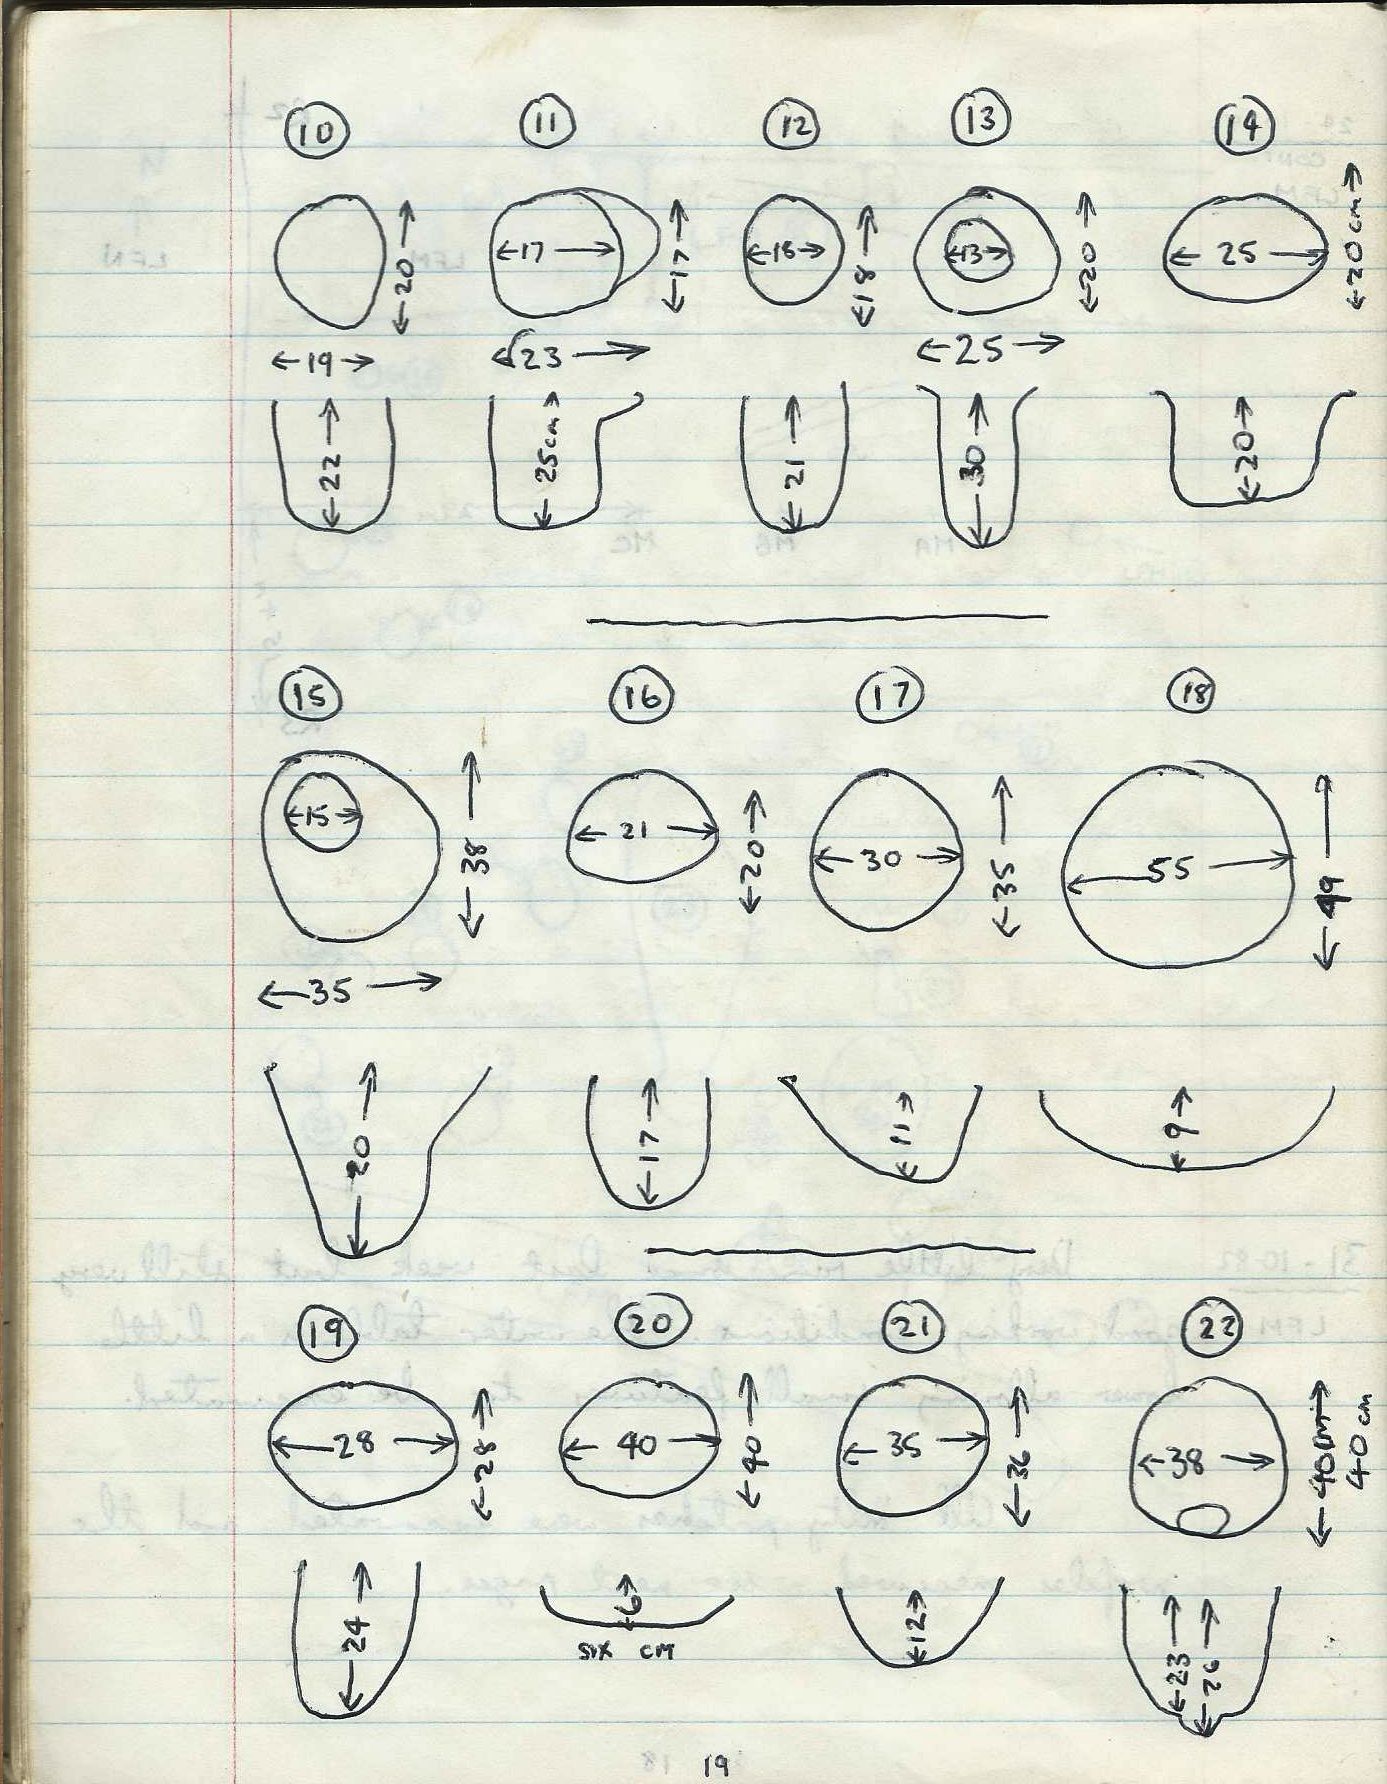 10 11 12 13 14
17 18 13 25
20 17 18 20 20cm
19 23 25
22 25cm 21 30 20
15 16 17 18
15 21 30 55
38 20 35 49
35
20 17 11 9
19 20 21 22
28 40 35 38
28 40 36 40cm 40cm
24 6 12 23 26
SIX CM
19